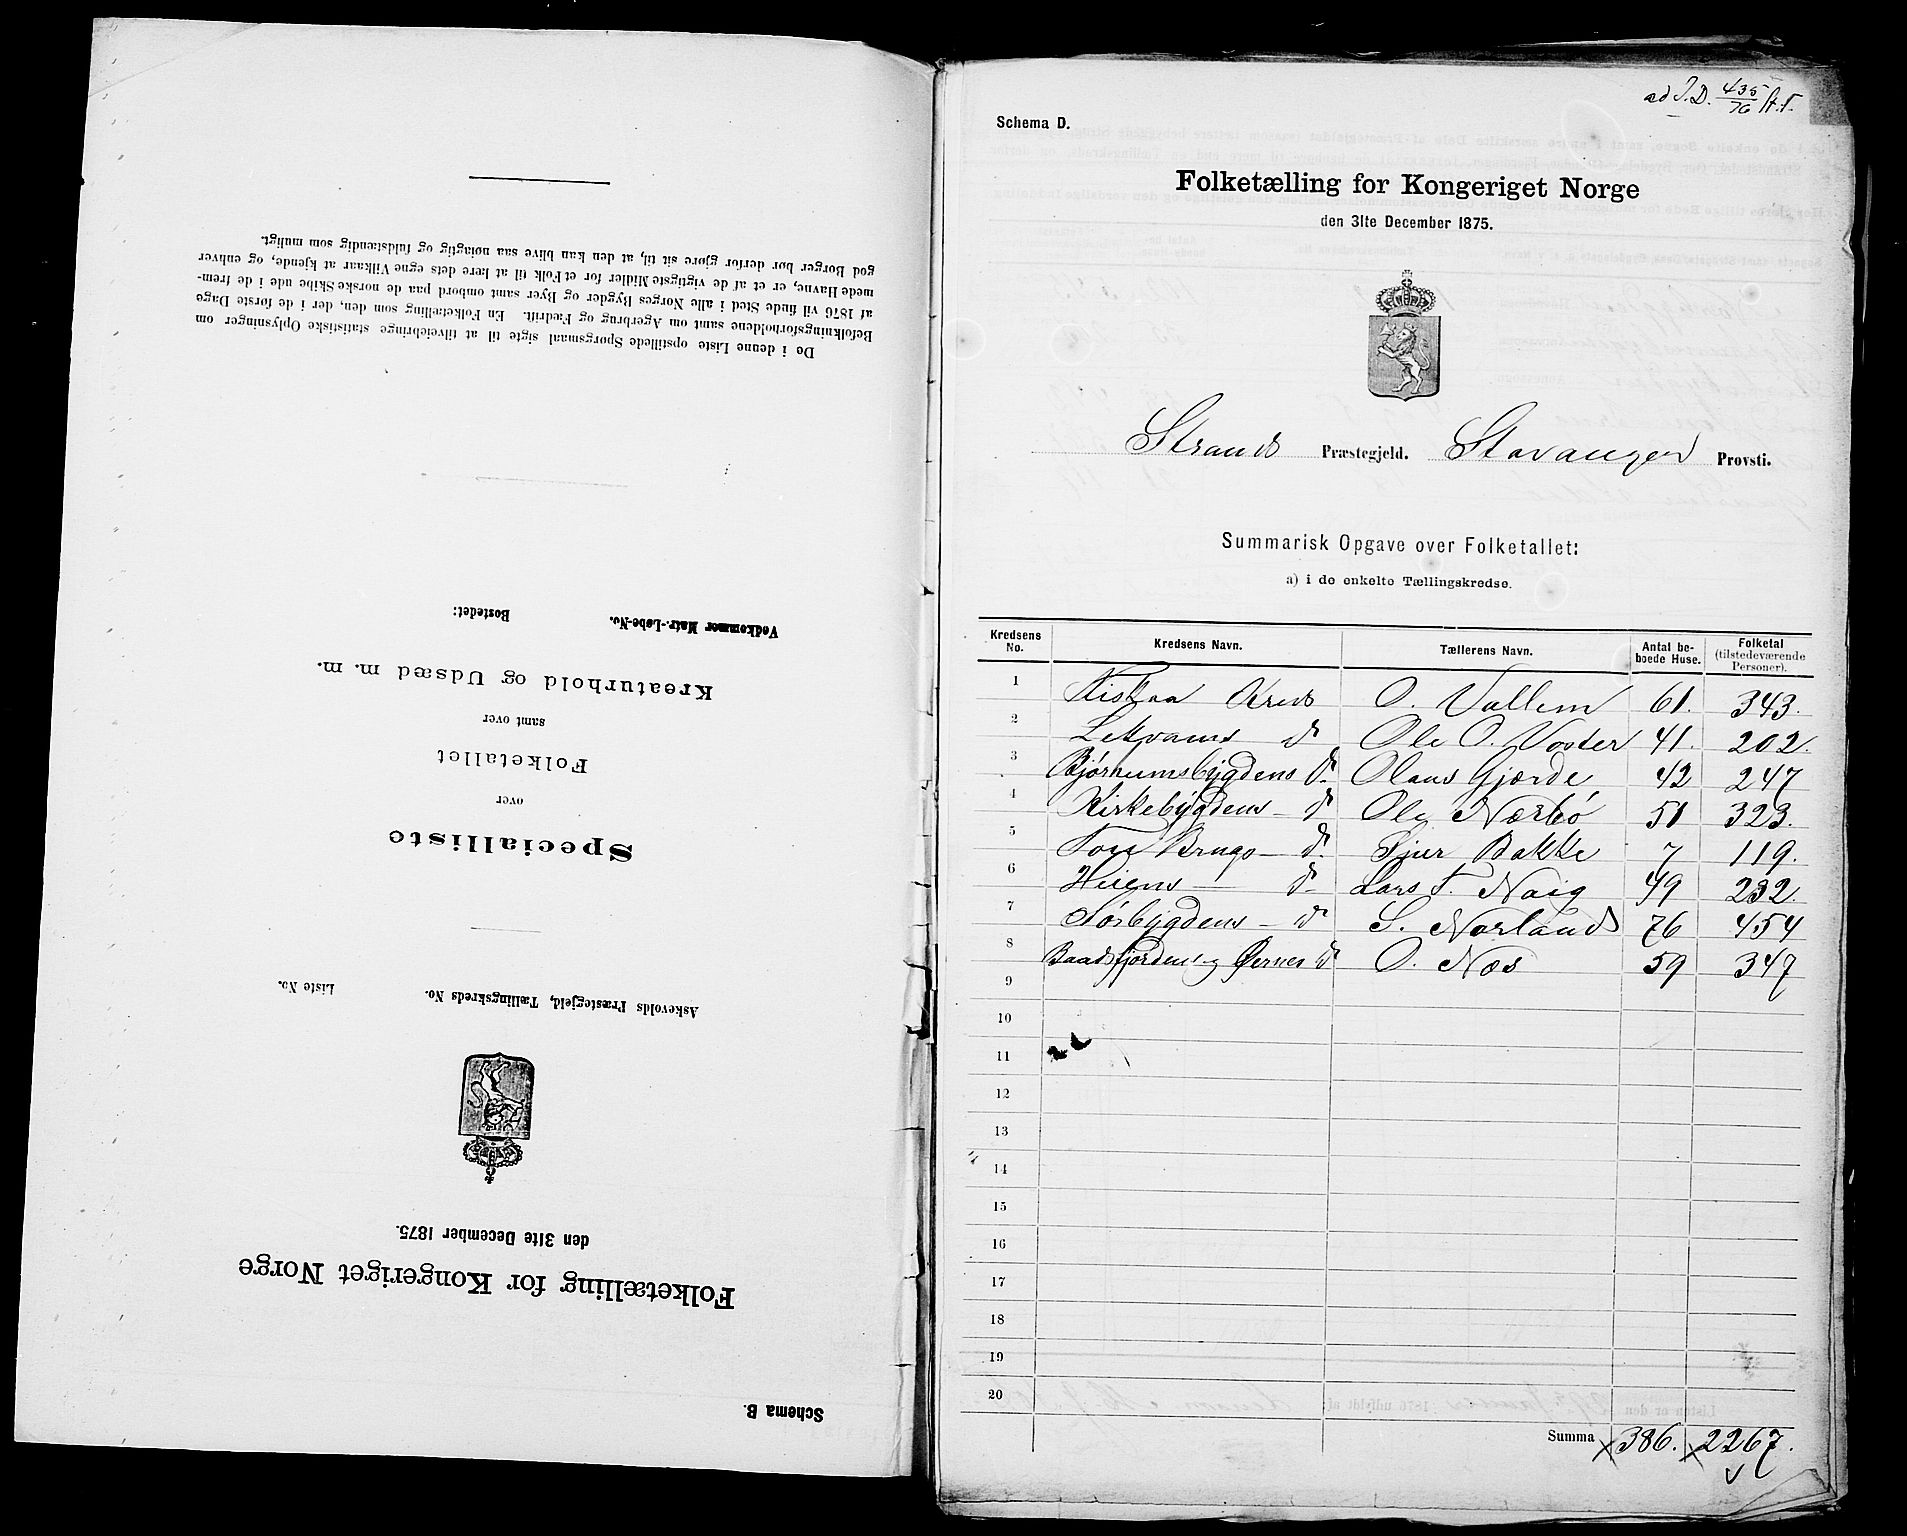 Schema B.
Folketælling for Kongeriget Norge
den 31te December 1875.
Askevolds Præstegjeld, Tællingskreds No. Liste No.
Specialliste
over
Folketallet
samt over
Kreaturhold og Udsæd m. m.
Vedkommer Matr.-Løbe-No. Bostedet:
De i denne Liste opstillede Spørgsmaal sigte til at tilveiebringe statistiske Oplysninger om
Befolkningsforholdene samt om Agerbrug og Fædrift. En Folketælling som den, der i de første Dage
af 1876 vil finde Sted i alle Norges Bygder og Byer samt ombord paa de norske Skibe ude i de frem-
mede Havne, er et af de vigtigste Midler for et Folk til at lære dets egne Vilkaar at kjende, og enhver
god Borger bør derfor gjøre sit til, at den kan blive saa nøiagtig og fuldstændig som muligt.
ad J.D. 435/76
Schema D.
Folketælling for Kongeriget Norge
den 31te December 1875.
Strands Præstegjeld. Stavanger Provsti.
Summarisk Opgave over Folketallet:
a) i de enkelte Tællingskredse.
Kredsens No. Kredsens Navn. Tællerens Navn. Antal be-boede Huse. Folketal (tilstedeværende Personer).
1 Kreds O. Vallem 61. 343.
2 Lekvams do Ole O. Voster 41. 202.
3 Bjørheimsbygdens do Olaus Gjærde 42 247
4 Kirkebygdens do Ole Nærbø 51 323.
5 do Sjur Bakke 7 119.
6 Heiens do Lars T. Naig 49 232.
7 Sørbygdens do S. Norland 76 454
8 do O. Næs 59 347
9
10
11
12
13
14
15
16
17
18
19
20
Summa 386. 2267.